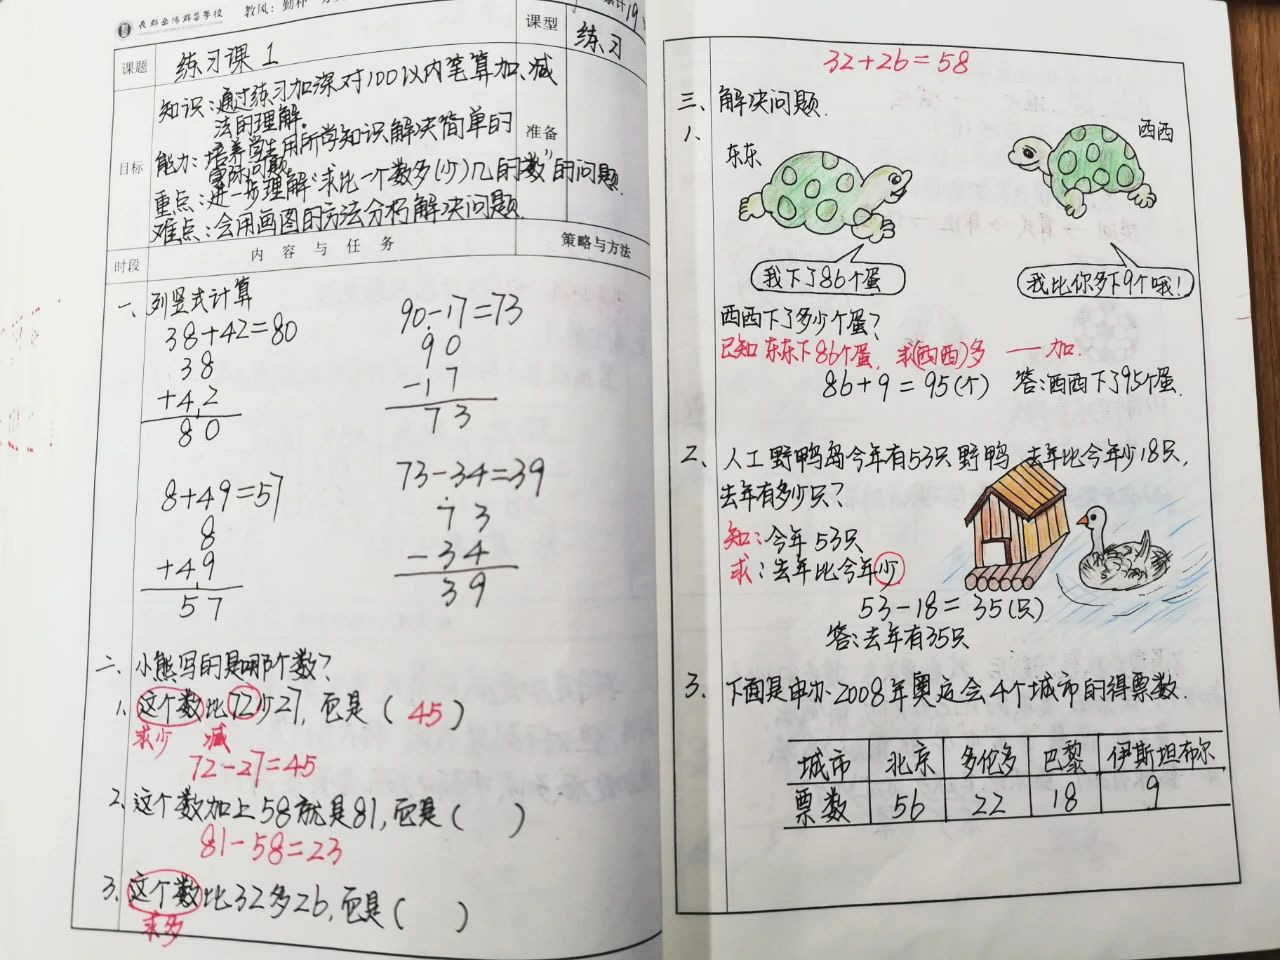 长郡岳阳郡华学校 教风：勤朴
课型 练习
课题 练习课1
目标
知识：通过练习加深对100以内笔算加、减
法的理解。
能力：培养学生用所学知识解决简单的
实际问题。
重点：进一步理解“求比一个数多(少)几的数”的问题.
难点：会用画图的方法分析解决问题.
准备
时段 内容与任务 策略与方法
一、列竖式计算
38+42=80
38
+42
80
90-17=73
90
-17
73
8+49=57
8
+49
57
73-34=39
73
-34
39
二、小熊写的是哪个数?
1.这个数比72少27,它是( 45 )
求少 减
72-27=45
2.这个数加上58就是81,它是( )
81-58=23
3.这个数比32多26,它是( )
求多
32+26=58
三、解决问题.
1、
东东
西西
我下了86个蛋
我比你多下9个哦!
西西下了多少个蛋?
已知 东东下86个蛋, 求(西西)多 — 加.
86+9=95(个) 答:西西下了95个蛋.
2、人工野鸭岛今年有53只野鸭 去年比今年少18只,
去年有多少只?
知:今年53只
求:去年比今年少
53-18=35(只)
答:去年有35只
3、下面是申办2008年奥运会4个城市的得票数.
城市 北京 多伦多 巴黎 伊斯坦布尔
票数 56 22 18 9